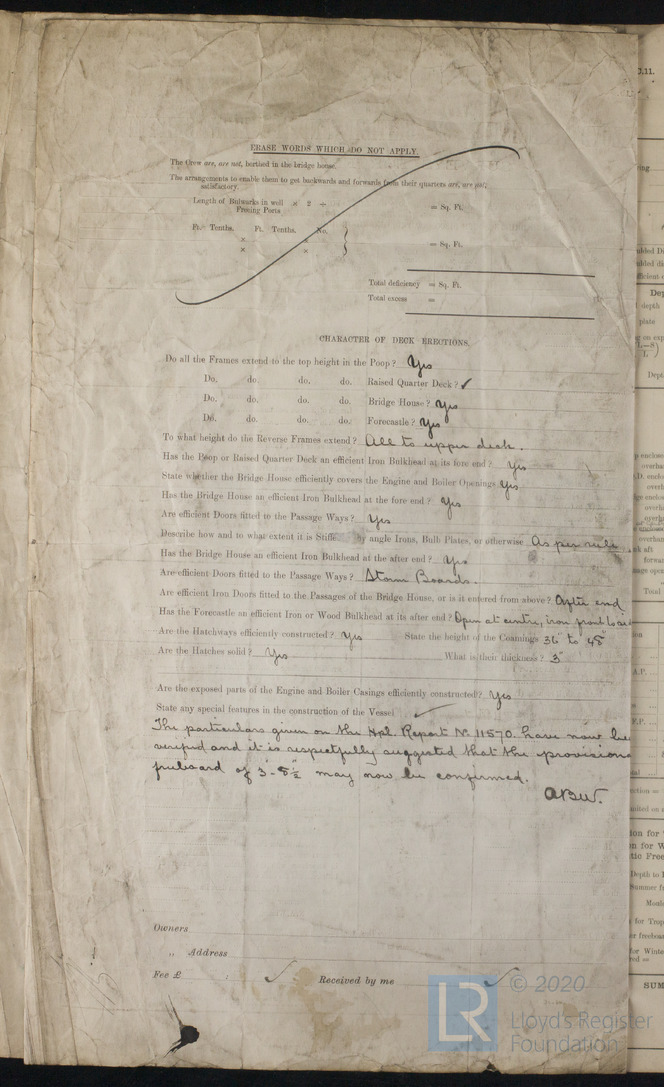 ERASE WORDS WHICH DO NOT APPLY.
The Crew are, are not, berthed in the bridge house.
The arrangements to enable them to get backwards and forwards from their quarters are, are not,
satisfactory.
Length of Bulwarks in well × 2 ÷ = Sq. Ft.
Freeing Ports
Ft. Tenths. Ft. Tenths. No.
× ×
= Sq. Ft.
× ×
Total deficiency = Sq. Ft.
Total excess =
CHARACTER OF DECK ERECTIONS.
Do all the Frames extend to the top height in the Poop? Yes
Do. do. do. do. Raised Quarter Deck? ✓
Do. do. do. do. Bridge House? Yes
Do. do. do. do. Forecastle? Yes
To what height do the Reverse Frames extend? All to upper deck.
Has the Poop or Raised Quarter Deck an efficient Iron Bulkhead at its fore end? Yes
State whether the Bridge House efficiently covers the Engine and Boiler Openings Yes
Has the Bridge House an efficient Iron Bulkhead at the fore end? Yes
Are efficient Doors fitted to the Passage Ways? Yes
Describe how and to what extent it is Stiff by angle Irons, Bulb Plates, or otherwise As per rule
Has the Bridge House an efficient Iron Bulkhead at the after end? Yes
Are efficient Doors fitted to the Passage Ways? Storm Boards.
Are efficient Iron Doors fitted to the Passages of the Bridge House, or is it entered from above? After end
Has the Forecastle an efficient Iron or Wood Bulkhead at its after end? Open at centre, iron front to
Are the Hatchways efficiently constructed? Yes State the height of the Coamings 36" to 48"
Are the Hatches solid? Yes What is their thickness? 3"
Are the exposed parts of the Engine and Boiler Casings efficiently constructed? Yes
State any special features in the construction of the Vessel
The particulars given on the Hpl. Report No 11570. have now
verified and it is respectfully suggested that the provisiona
freeboard of 3'-8½" may now be confirmed.
ABW.
Owners
„ Address
Fee £ : Received by me
LR © 2020
Lloyd's Register
Foundation